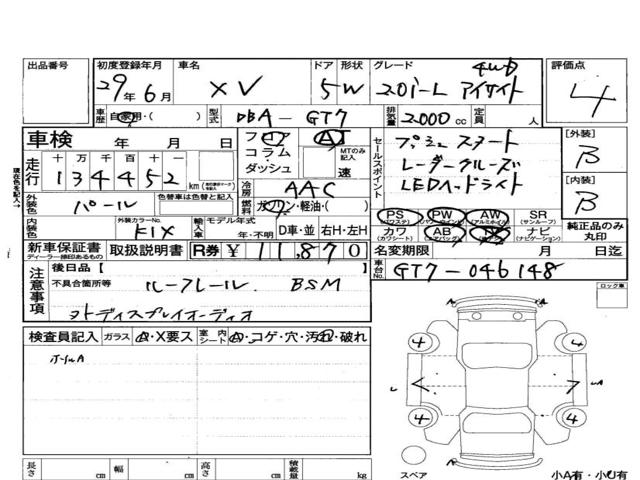 出品番号
初度登録年月 29年 6月
車名 XV
ドア 5 形状 W
グレード 4WD 2.0i-L アイサイト
評価点 4
車歴 自家用・( )
型式 DBA-GT7
排気量 2000 cc
定員 人
車検 年 月 日
フロア
コラム
ダッシュ
AT
MTのみ記入
速
セールスポイント
プッシュスタート
レーダークルーズ
LEDヘッドライト
[外装] B
[内装] B
現在色を記入→
走行 十 万 千 百 十
134452 km
冷房 AAC
燃料 ガソリン・軽油・( )
外装色 パール
色替車は色替と記入
内装色
外装カラーNo. K1X
輸入車 モデル年式 年・不明 D車・並 右H・左H
PS (パワステ) PW (パワーウインドウ) AW (アルミホイル) SR (サンルーフ)
カワ (カワシート) AB (エアバッグ) TV ナビ (ナビゲーション)
純正品のみ丸印
新車保証書 ディーラー捺印あるもの
取扱説明書
R券 ¥11,870
名変期限 月 日迄
車台No. GT7-046148
注意事項
後日品【 】
不具合箇所等 ルーフレール BSM
ロック車
検査員記入
ガラス A・X要ス
室内シート A・コゲ・穴・汚れ・破れ
ホイルA
4 4
A
4 4
スペア
小A有・小U有
長さ cm 幅 cm 高さ cm 積載量 kg